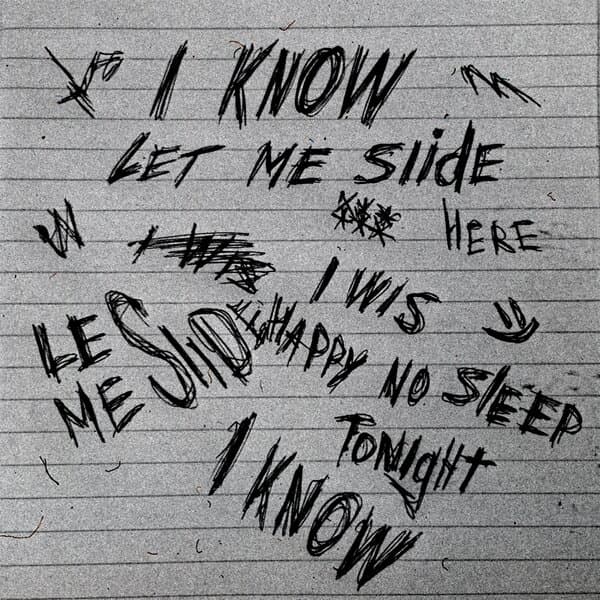 I KNOW
LET ME SlidE
*** HERE
I WIS
HAPPY
LE
ME SlID
NO SlEEP
TONIgHT
I KNOW